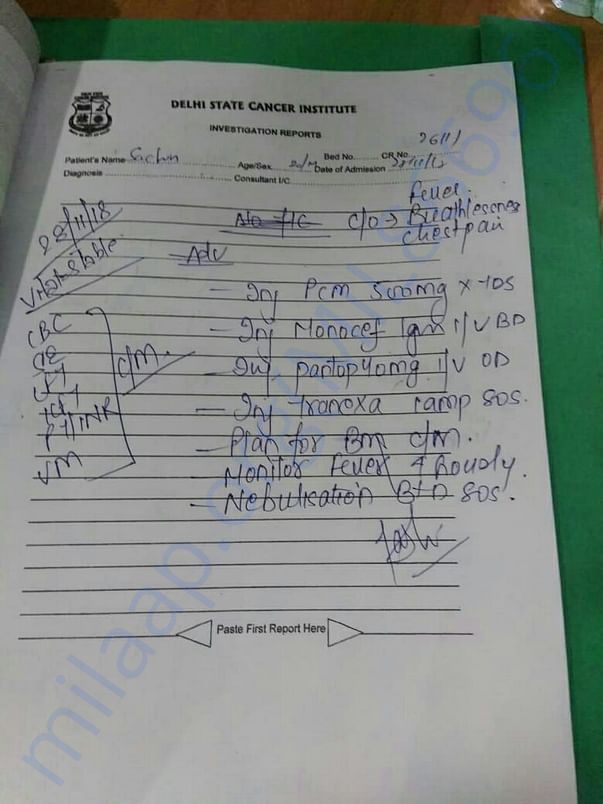 DELHI STATE CANCER INSTITUTE
INVESTIGATION REPORTS
2611/
Patient's Name Sachin Age/Sex 20/M Bed No. CR No.
Diagnosis Consultant I/C Date of Admission
28/11/18
Fever.
c/o → Breathlessness
chest pain
Vitals stable
Adv
- Inj Pcm 500mg x 10s
- Inj Monocef 1gm I/V BD
- Inj. pantop 40mg I/V OD
- Inj Tranexa 1amp SOS.
- Plan for BM c/m.
- Monitor Fever 4 hourly.
- Nebulisation BD SOS.
CBC
SE
LFT
KFT
PT/INR
VM
c/m.
Paste First Report Here
milaap.org